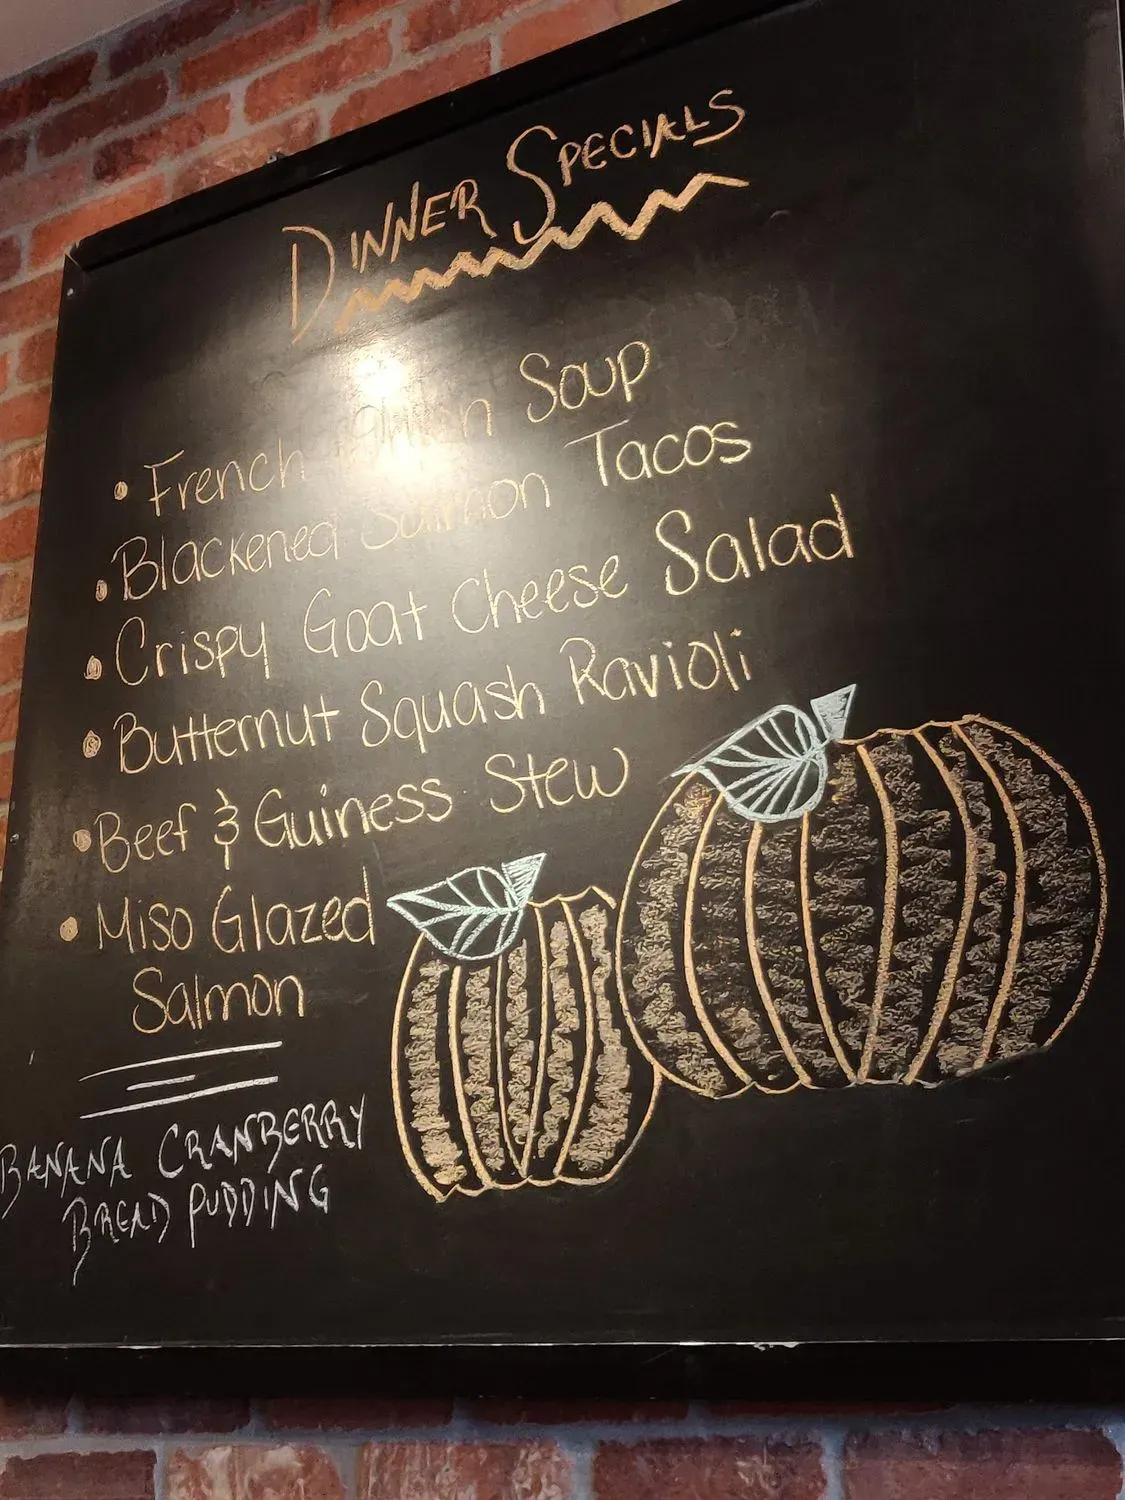 DINNER SPECIALS
• French Onion Soup
• Blackened Salmon Tacos
• Crispy Goat Cheese Salad
• Butternut Squash Ravioli
• Beef & Guiness Stew
• Miso Glazed
Salmon
BANANA CRANBERRY
BREAD PUDDING